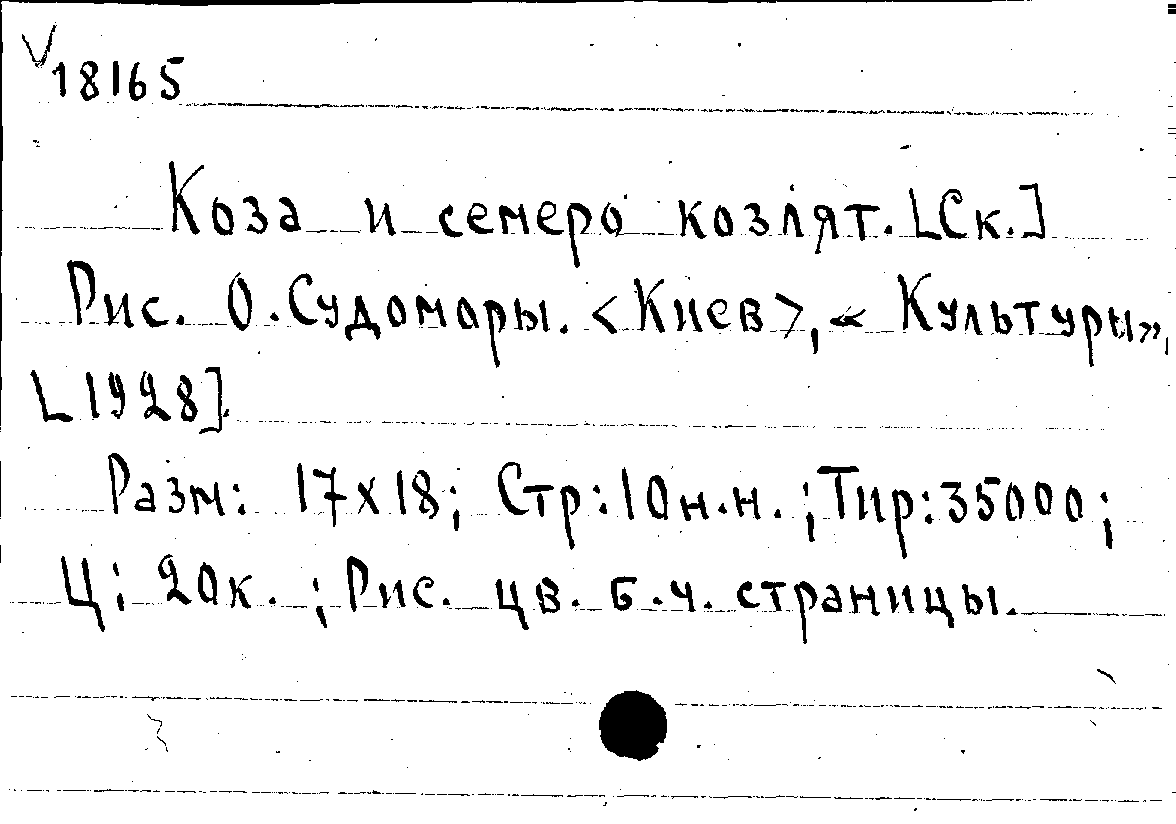 V 18165
Коза и семеро козлят. [Ск.]
Рис. О. Судомары. <Киев>, «Культуры»,
[1928].
Разм: 17х18; Стр: 10 н.н.; Тир: 35000;
Ц: 20к.; Рис. цв. б.ч. страницы.